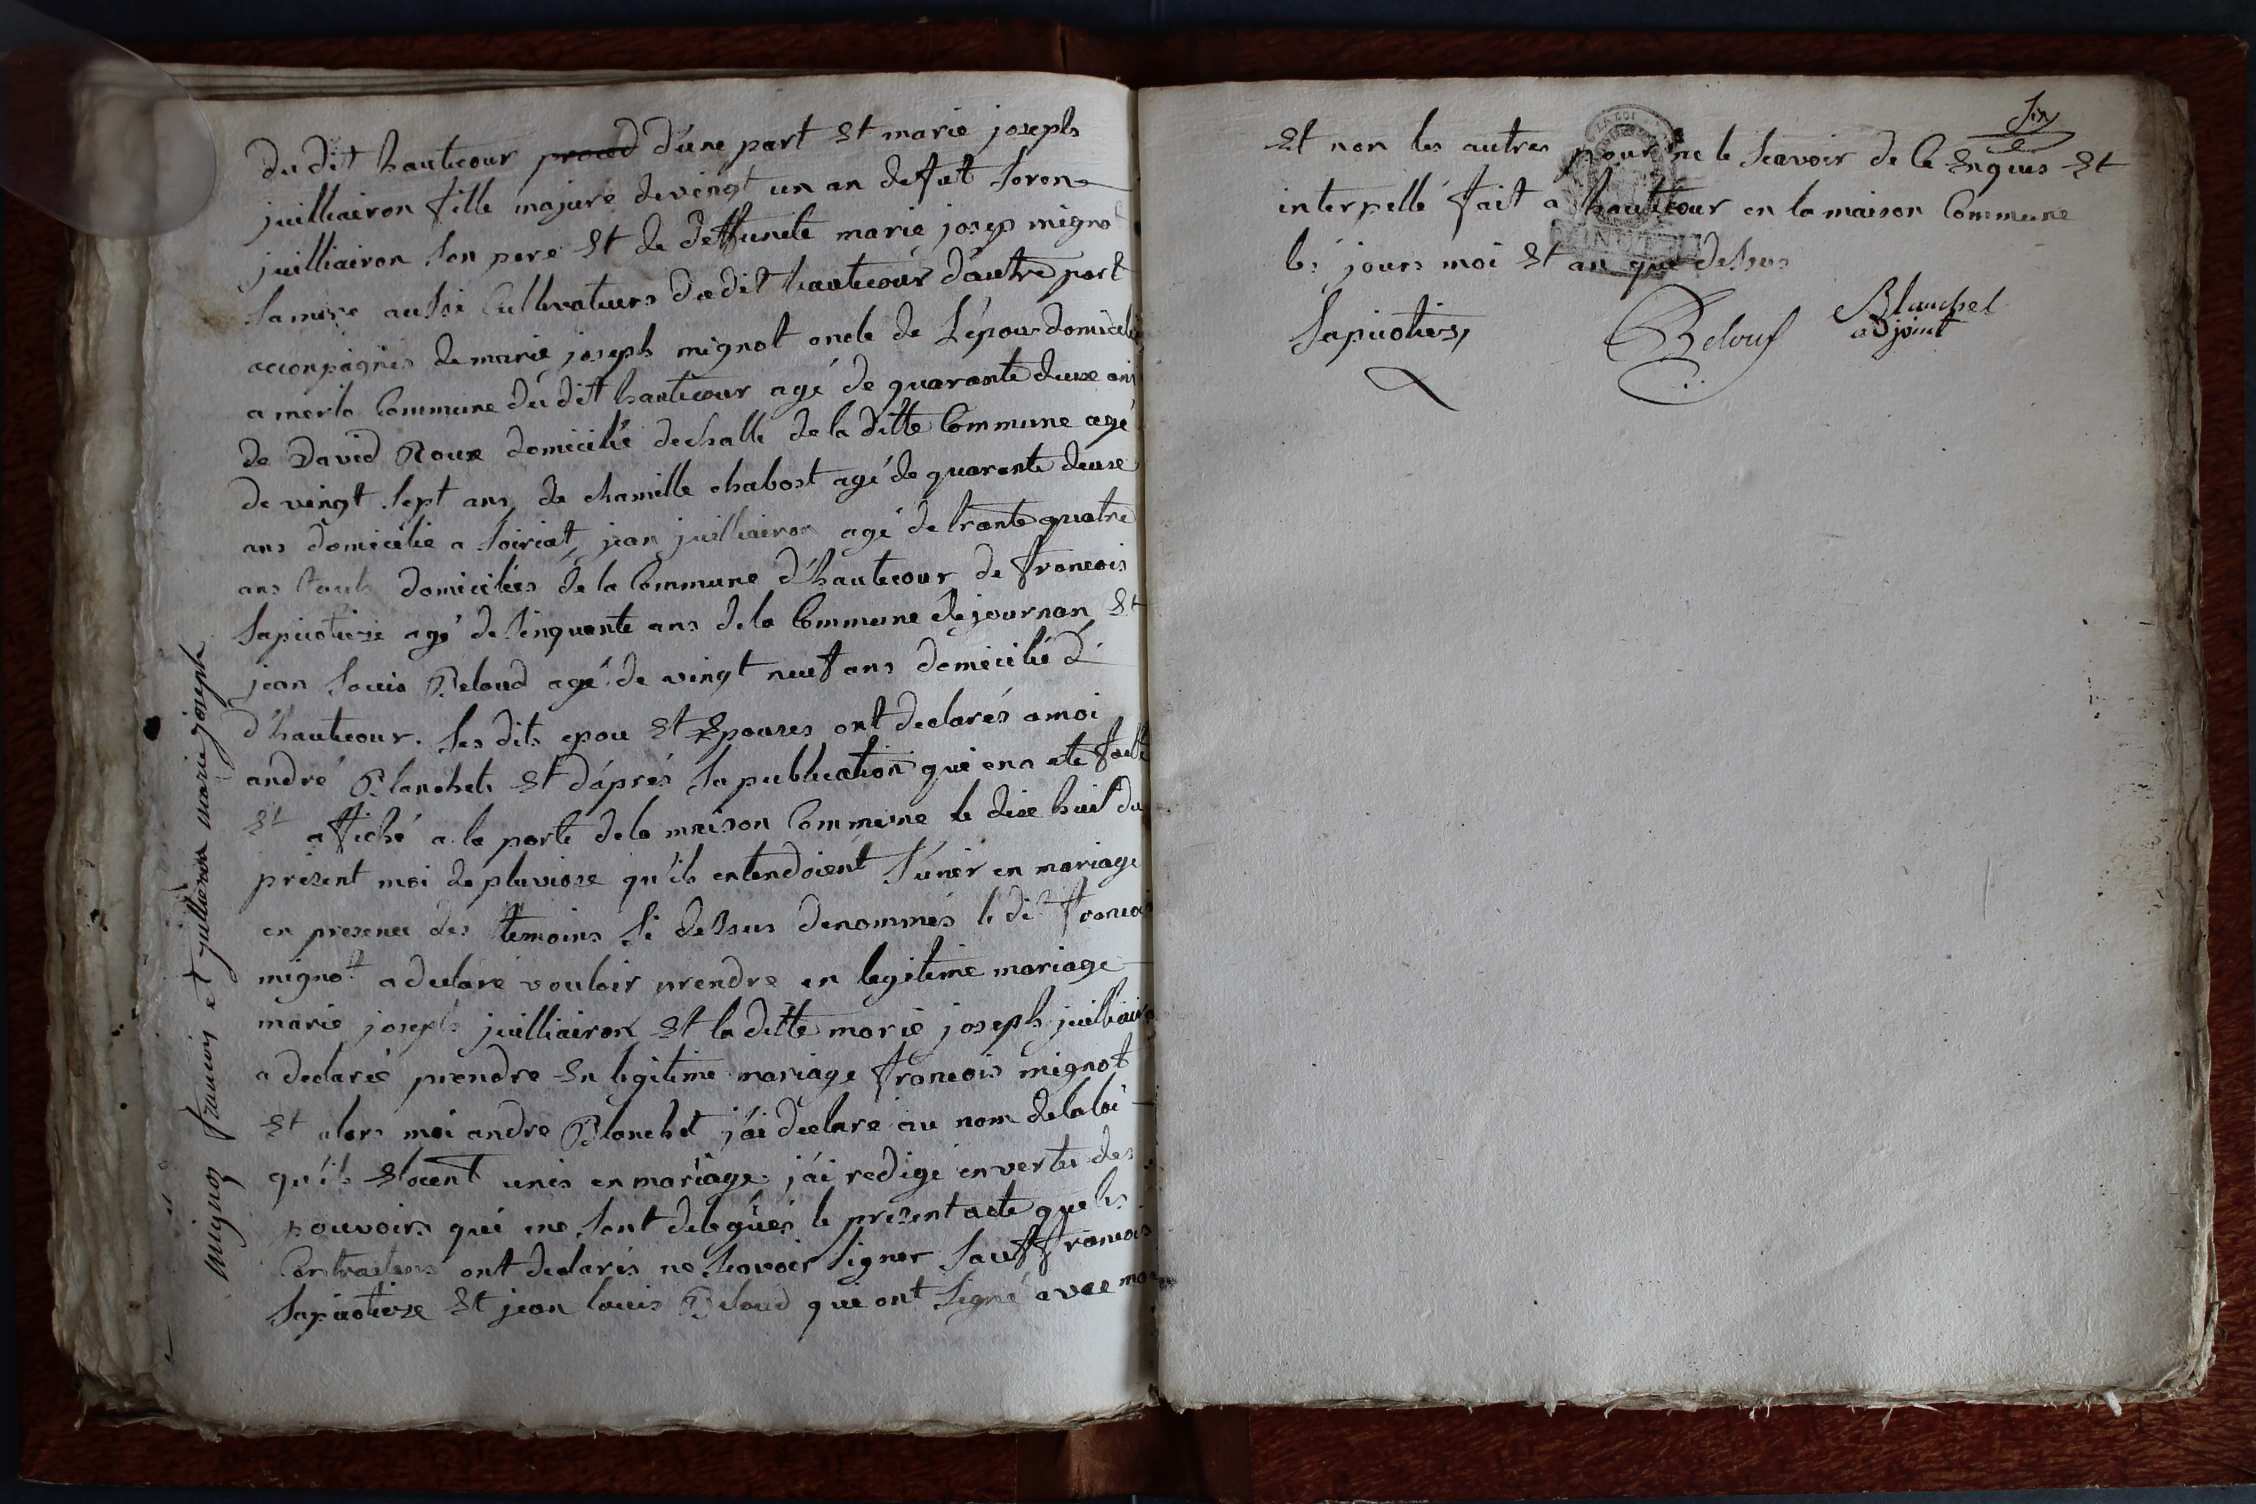 du dit hautecour d'une part Et marie joseph
juilliairon fille majure de vingt un an de fut loren
juilliairon son pere Et de deffuncte marie josep mignot
sa mere aussi Cultivateurs du dit hautecour d'autre part
acconpagnés de marie joseph mignot oncle de L'épou domicilié
a merlo Commune du dit hautecour agé de quarante deux ans
de David Roux domicilié de challe de la ditte Commune agé
de vingt sept ans, de chamille chabost agé de quarante deuxe
ans domicilie a Soiriat, jean juilliairon agé de trante quatre
ans touts domiciliés de la Commune d'hautecour de francois
Lapicotiere agé de sinquante ans de la Commune de journan Et
jean Louis Beloud agé de vingt neuf ans domicilié d'
d'hautecour. les dits epou Et Epouxes ont declarés a moi
andré Blanchet Et d'áprés la publication qui en a eté faitte
Et affiché a la porte de la maison Commune le dixe huit du
présent moi de pluviose qu'ils entendoient s'unir en mariage
en presence des temoins si dessus denommés le dit francois
mignot a declaré vouloir prendre en legitime mariage
marie joseph juilliairon Et la ditte marie joseph juilliairon
a declaré prendre En legitime mariage francois mignot
Et alors moi andre Blanchet j'ái declare au nom de la loi
qu'ils Etoient unis en mariage j'ái redigé en vertu des
pouvoirs qui me sont delegués le present acte que les
Contractans ont declarés ne scavoir signer sauf francois
Lapicotiere Et jean louis Beloud qui ont signé avec moi
mignot francois et jullieron marie joseph
Six
Et non les autres pour ne le scavoir de ce Enquis Et
interpellé fait a hautecour en la maison Commune
les jours moi Et an que dessus
Lapicotiere
Beloud
Blanchet
adjoint